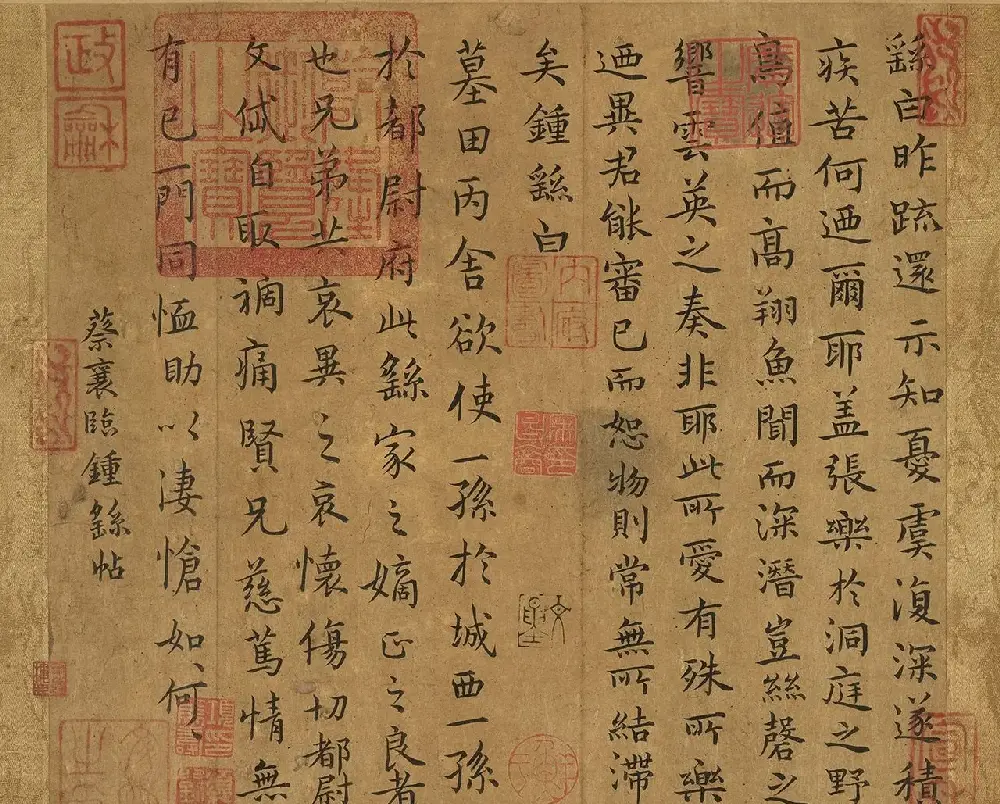 繇白昨疏還示知憂虞復深遂積
疾苦何迺爾耶蓋張樂於洞庭之野
鳥值而高翔魚聞而深潛豈絲磬之
響雲英之奏非耶此所愛有殊所樂
迺異君能審己而恕物則常無所結滯
矣鍾繇白
墓田丙舍欲使一孫於城西一孫
於都尉府此繇家之嫡正之良者
也兄弟共哀異之哀懷傷切都尉
文岱自取禍痛賢兄慈篤情無
有已一門同恤助以悽愴如何
蔡襄臨鍾繇帖
政龢
內府圖書